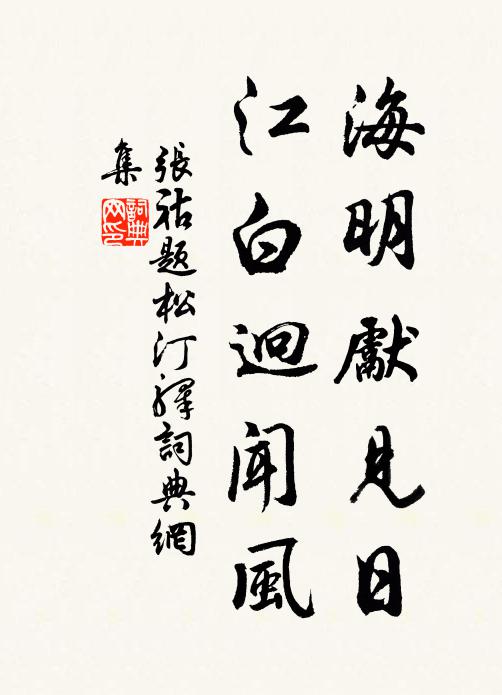 海明獻見日
江白迥聞風
張祜題松汀驛詞典網
集
詞典
网印